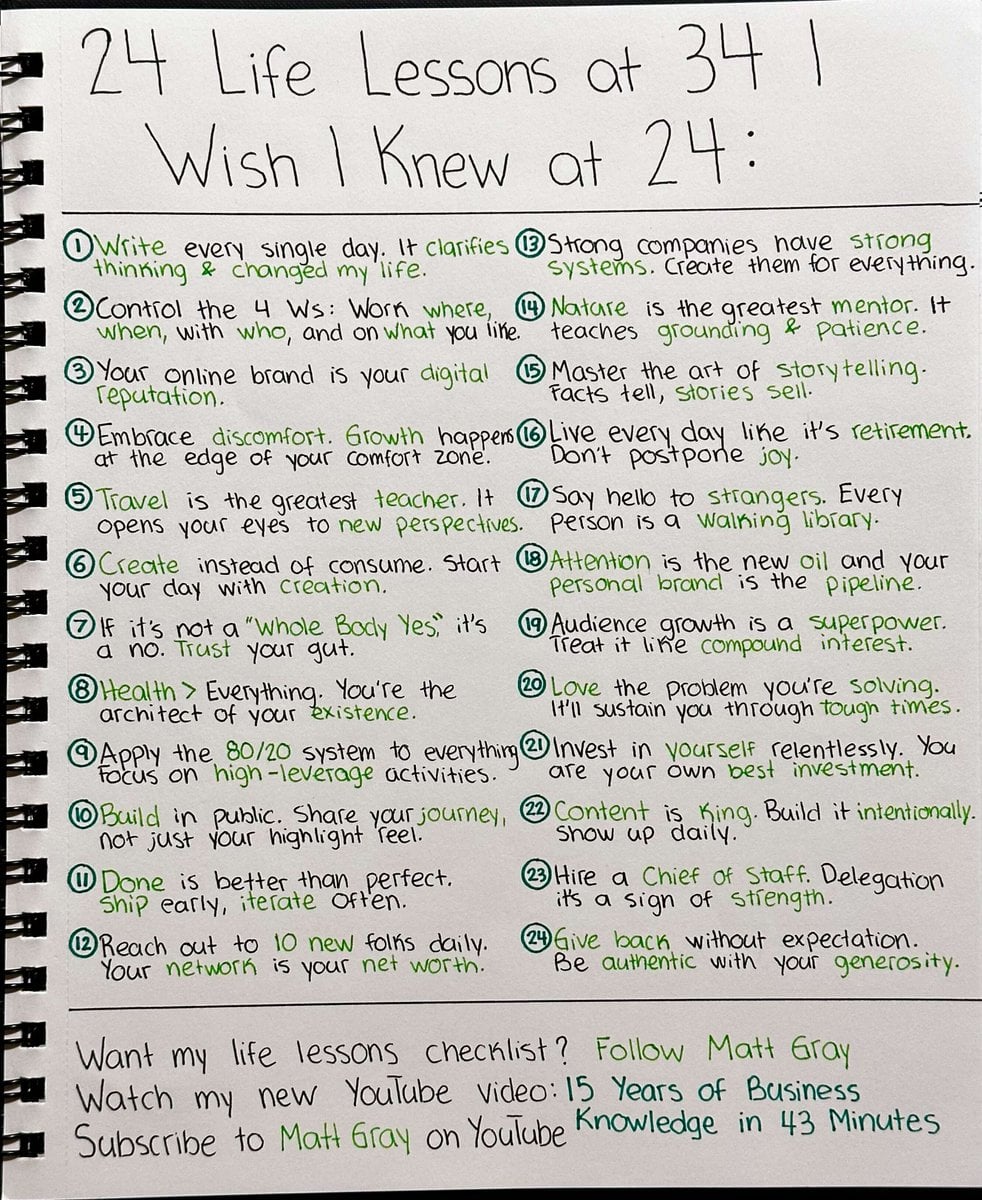 24 Life Lessons at 34 I
Wish I Knew at 24:
1 Write every single day. It clarifies
thinking & changed my life.
2 Control the 4 Ws: Work where,
when, with who, and on what you like.
3 Your online brand is your digital
reputation.
4 Embrace discomfort. Growth happens
at the edge of your comfort zone.
5 Travel is the greatest teacher. It
opens your eyes to new perspectives.
6 Create instead of consume. Start
your day with creation.
7 If it's not a "Whole Body Yes," it's
a no. Trust your gut.
8 Health > Everything. You're the
architect of your existence.
9 Apply the 80/20 system to everything
focus on high-leverage activities.
10 Build in public. Share your journey,
not just your highlight reel.
11 Done is better than perfect.
Ship early, iterate often.
12 Reach out to 10 new folks daily.
Your network is your net worth.
13 Strong companies have strong
systems. Create them for everything.
14 Nature is the greatest mentor. It
teaches grounding & patience.
15 Master the art of storytelling.
Facts tell, stories sell.
16 Live every day like it's retirement.
Don't postpone joy.
17 Say hello to strangers. Every
person is a walking library.
18 Attention is the new oil and your
personal brand is the pipeline.
19 Audience growth is a superpower.
Treat it like compound interest.
20 Love the problem you're solving.
It'll sustain you through tough times.
21 Invest in yourself relentlessly. You
are your own best investment.
22 Content is King. Build it intentionally.
Show up daily.
23 Hire a Chief of Staff. Delegation
it's a sign of strength.
24 Give back without expectation.
Be authentic with your generosity.
Want my life lessons checklist? Follow Matt Gray
Watch my new YouTube video: 15 Years of Business
Knowledge in 43 Minutes
Subscribe to Matt Gray on YouTube